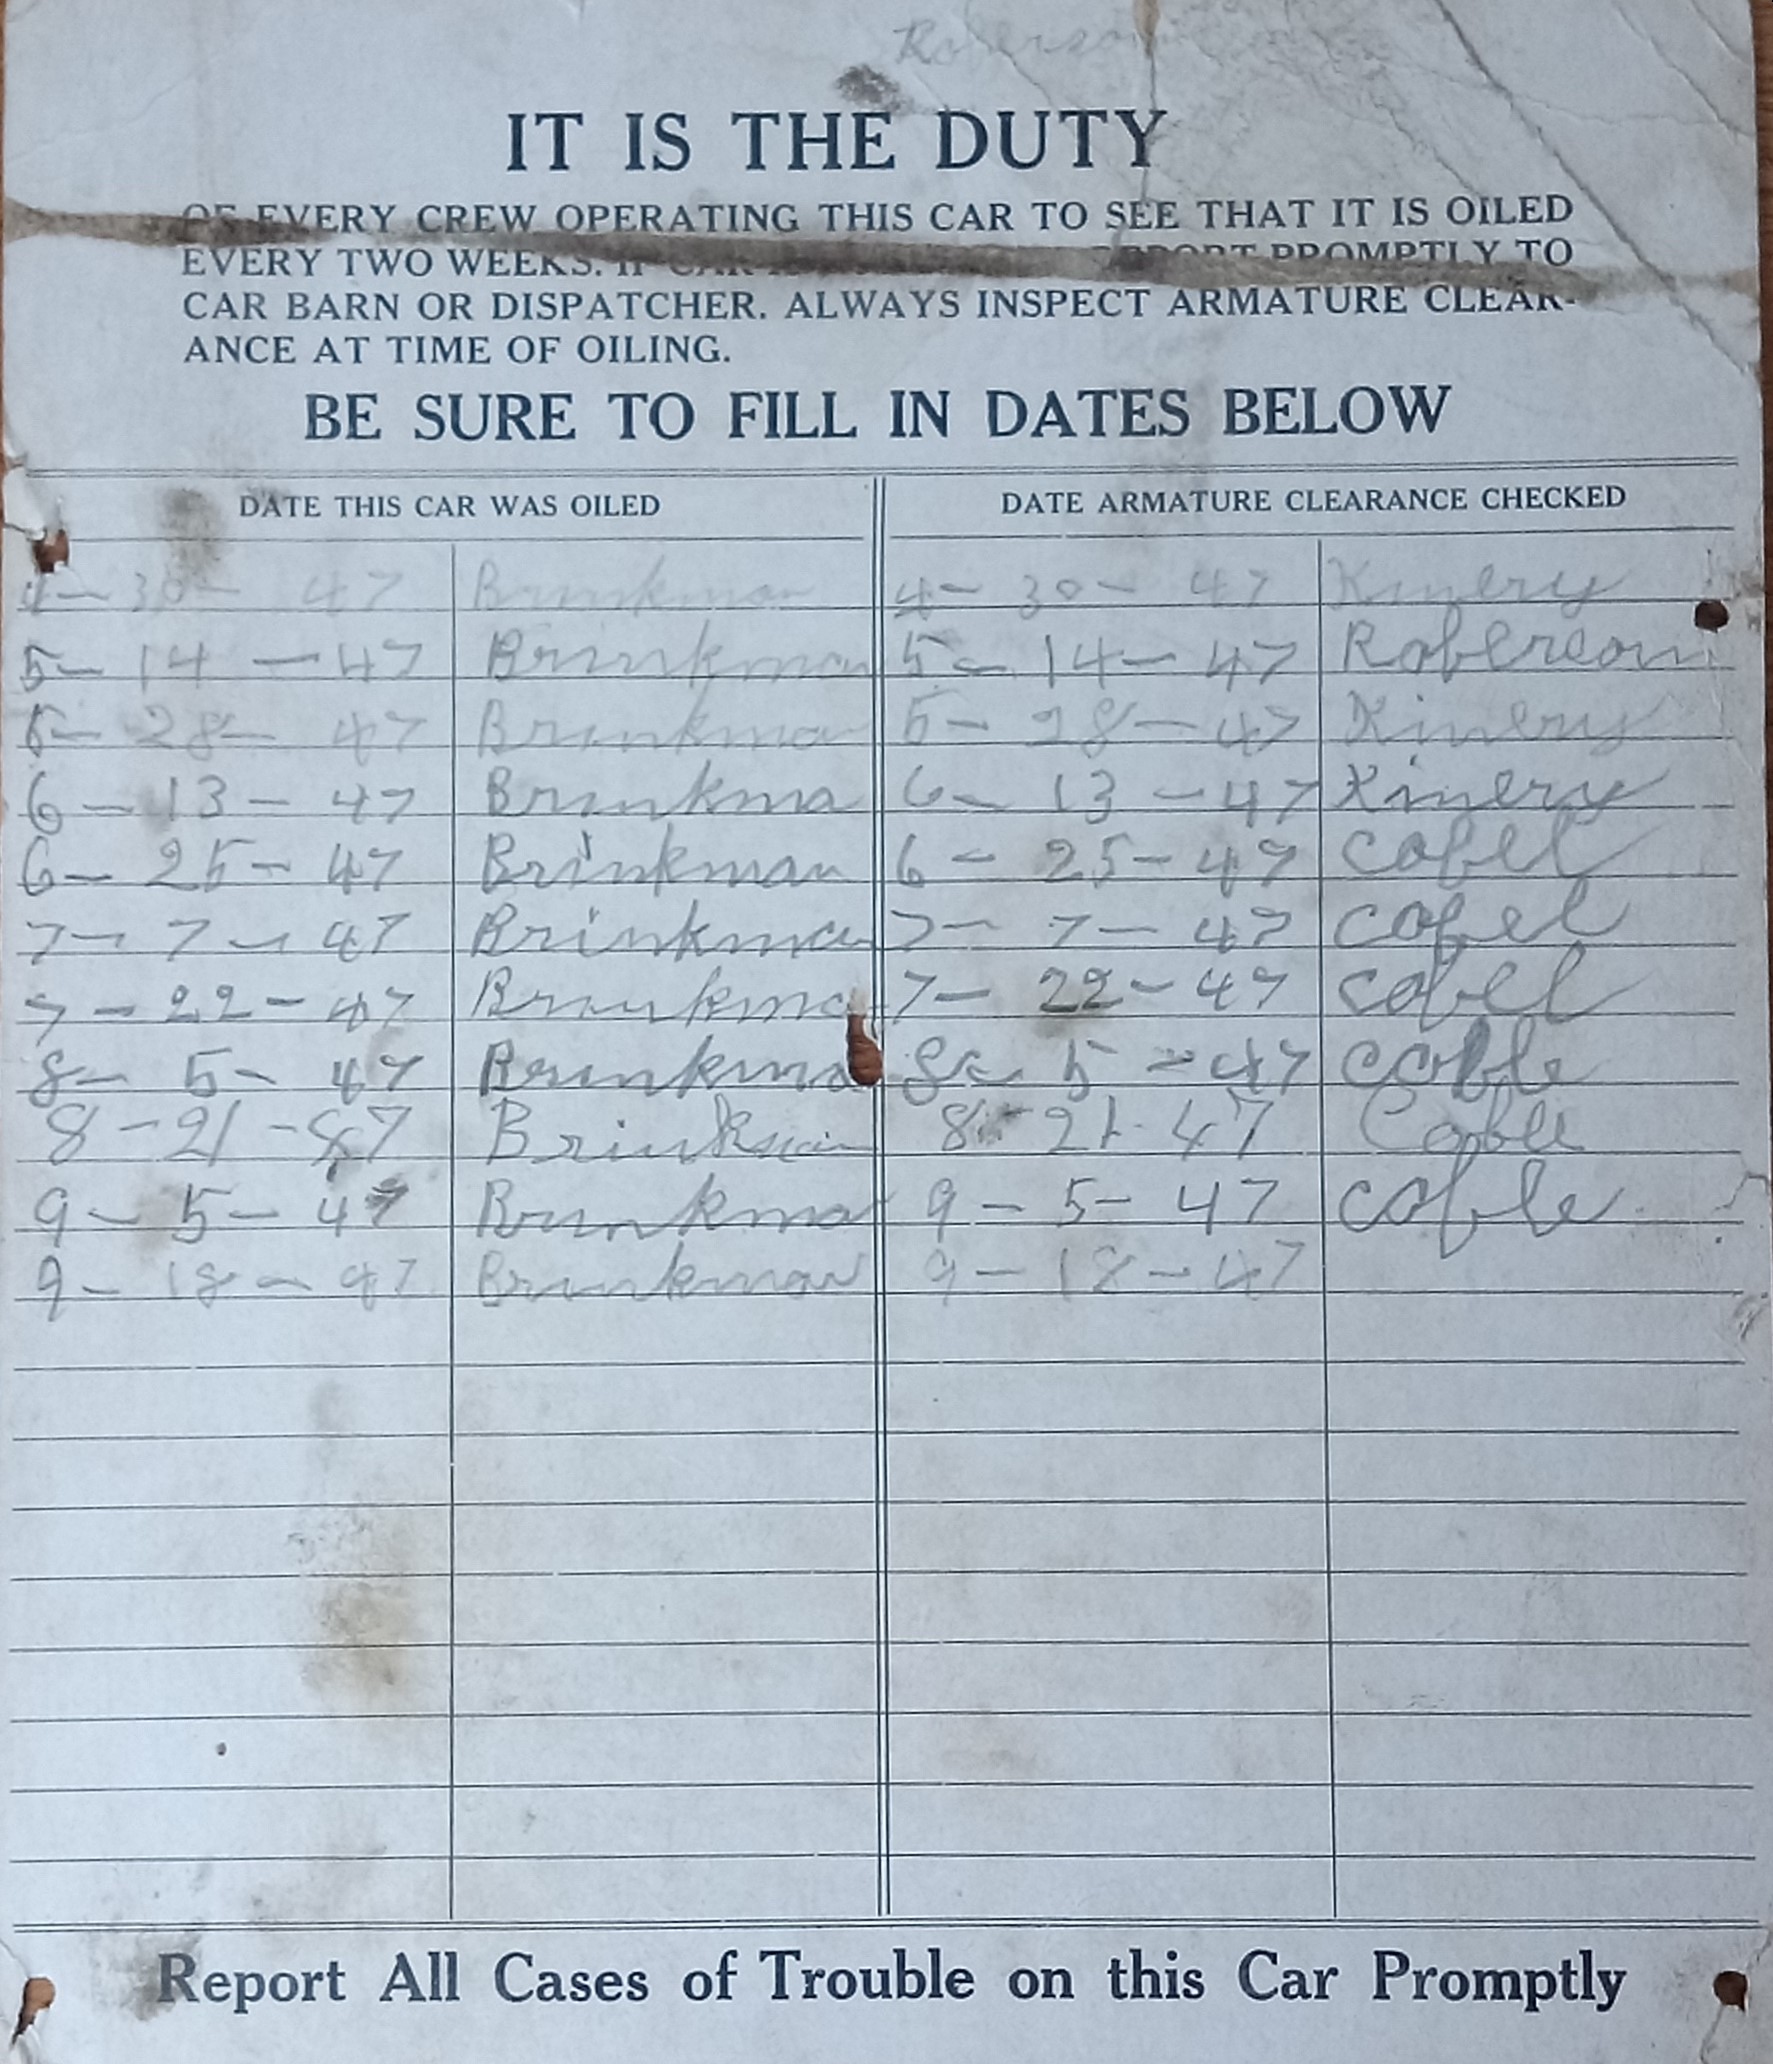 Roberson
IT IS THE DUTY
OF EVERY CREW OPERATING THIS CAR TO SEE THAT IT IS OILED
EVERY TWO WEEKS. IF CAR REPORT PROMPTLY TO
CAR BARN OR DISPATCHER. ALWAYS INSPECT ARMATURE CLEAR-
ANCE AT TIME OF OILING.
BE SURE TO FILL IN DATES BELOW
DATE THIS CAR WAS OILED DATE ARMATURE CLEARANCE CHECKED
4-30-47 Brinkman 4-30-47 Kinery
5-14-47 Brinkman 5-14-47 Roberson
5-28-47 Brinkman 5-28-47 Kinery
6-13-47 Brinkma 6-13-47 Kinery
6-25-47 Brinkman 6-25-47 Cobel
7-7-47 Brinkman 7-7-47 Cobel
7-22-47 Brinkma 7-22-47 Cobel
8-5-47 Brinkma 8-5-47 Coble
8-21-47 Brinkman 8-21-47 Coble
9-5-47 Brinkma 9-5-47 Coble
9-18-47 Brinkman 9-18-47
Report All Cases of Trouble on this Car Promptly